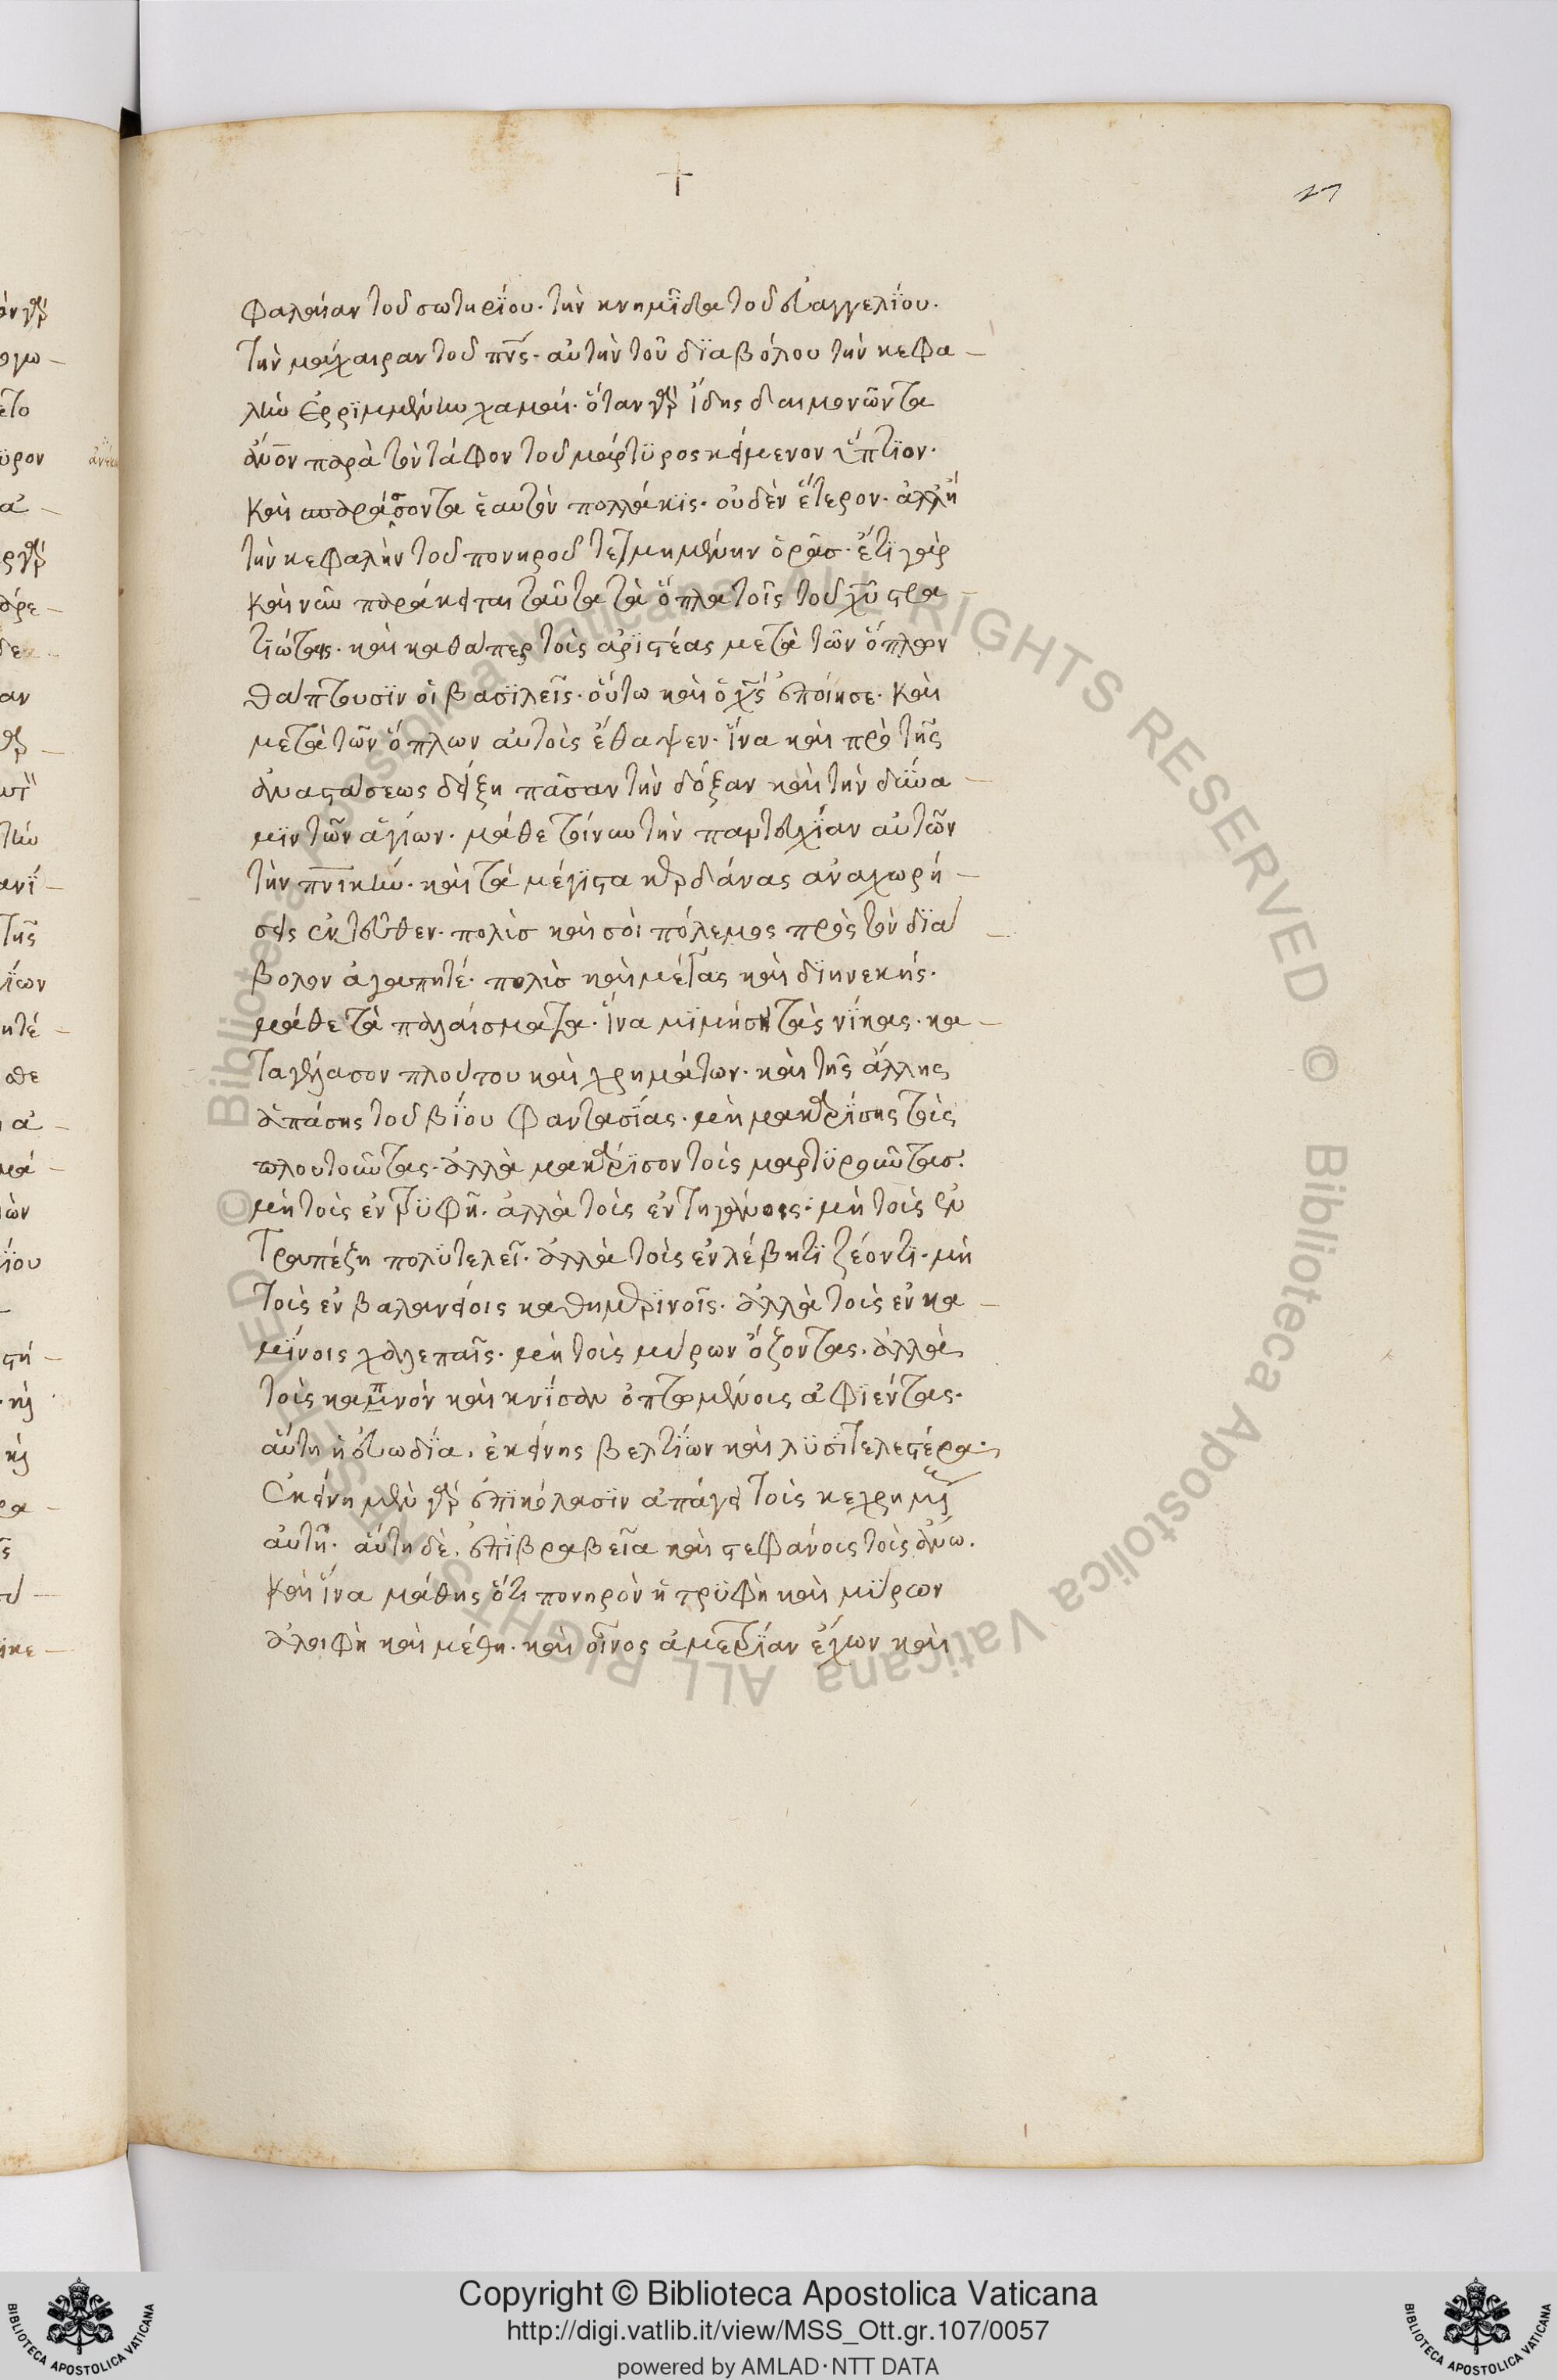 +
27
φαλαίαν τοῦ σωτηρίου. τὴν κνημῖδα τοῦ εὐαγγελίου.
τὴν μάχαιραν τοῦ πνς. αὐτὴν τοῦ διαβόλου τὴν κεφα
λὴν ἐρριμμένην χαμαί. ὅταν γὰρ ἴδης δαιμονῶντα
ἄνον παρὰ τὸν τάφον τοῦ μάρτυρος κείμενον ὕπτιον.
καὶ σπαράσσοντα ἑαυτὸν πολλάκις. οὐδὲν ἕτερον. ἀλλ' ἢ
τὴν κεφαλὴν τοῦ πονηροῦ τετμημένην ὁρᾶσ. ἔτι γὰρ
καὶ νῦν παράκειται ταῦτα τὰ ὅπλα τοῖς τοῦ χῦ στρα
τιώταις. καὶ καθάπερ τοὺς ἀριστέας μετὰ τῶν ὅπλων
θάπτουσιν οἱ βασιλεῖς. οὕτω καὶ ὁ χς ἐποίησε. καὶ
μετὰ τῶν ὅπλων αὐτοὺς ἔθαψεν. ἵνα καὶ πρὸ τῆς
ἀναστάσεως δείξη πᾶσαν τὴν δόξαν καὶ τὴν δύνα
μιν τῶν ἁγίων. μάθε τοίνυν τὴν παντευχίαν αὐτῶν
τὴν πνικήν. καὶ τὰ μέγιστα κερδάνας ἀναχωρή
σεις ἐντεῦθεν. πολὺσ καὶ σοὶ πόλεμος πρὸς τὸν διά
βολον ἀγαπητέ. πολὺσ καὶ μέγας καὶ διηνεκής.
μάθε τὰ παλαίσματα. ἵνα μιμήση τὰς νίκας. κα
ταγέλασον πλούτου καὶ χρημάτων. καὶ τῆς ἄλλης
ἁπάσης τοῦ βίου φαντασίας. μὴ μακαρίσης τοὺς
πλουτοῦντας. ἀλλὰ μακάρισον τοὺς μαρτυροῦντασ.
μὴ τοὺς ἐν τρυφῆ. ἀλλὰ τοὺς ἐν τηγάνοις. μὴ τοὺς ἐν
τραπέζη πολυτελεῖ. ἀλλὰ τοὺς ἐν λέβητι ζέοντι. μὴ
τοὺς ἐν βαλανείοις καθημερινοῖς. ἀλλὰ τοὺς ἐν κα
μίνοις χαλεπαῖς. μὴ τοὺς μύρων ὄζοντας. ἀλλὰ
τοὺς καπνὸν καὶ κνίσαν ὀπτωμένοις ἀφιέντας.
αὕτη ἡ εὐωδία. ἐκείνης βελτίων καὶ λυσιτελεστέρα.
ἐκείνη μὲν γὰρ ἐπὶ κόλασιν ἀπάγει τοὺς κεχρημένους
αὐτῆ. αὕτη δὲ. ἐπὶ βραβεῖα καὶ στεφάνους τοὺς ἄνω.
καὶ ἵνα μάθης ὅτι πονηρὸν ἡ τρυφὴ καὶ μύρων
ἀλοιφὴ καὶ μέθη. καὶ οἶνος ἀμετρίαν ἔχων καὶ
© Biblioteca Apostolica Vaticana ALL RIGHTS RESERVED © Biblioteca Apostolica Vaticana ALL RIGHTS RESERVED
Copyright © Biblioteca Apostolica Vaticana
http://digi.vatlib.it/view/MSS_Ott.gr.107/0057
powered by AMLAD·NTT DATA
BIBLIOTECA APOSTOLICA VATICANA
BIBLIOTECA APOSTOLICA VATICANA